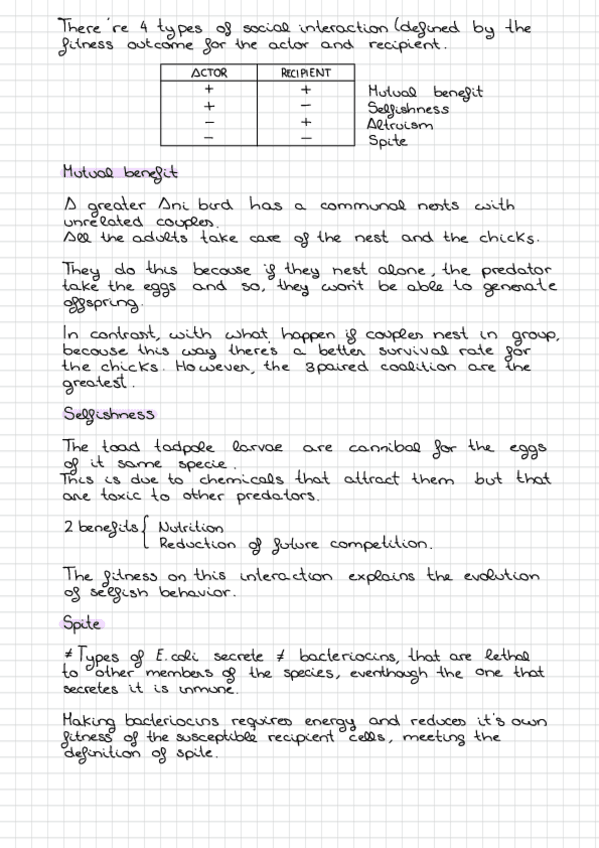 There're 4 types of social interaction (defined by the
fitness outcome for the actor and recipient.
ACTOR RECIPIENT
+ + Mutual benefit
+ − Selfishness
− + Altruism
− − Spite
Mutual benefit
A greater Ani bird has a communal nests with
unrelated couples.
All the adults take care of the nest and the chicks.
They do this because if they nest alone, the predator
take the eggs and so, they won't be able to generate
offspring.
In contrast, with what happen if couples nest in group,
because this way there's a better survival rate for
the chicks. However, the 3paired coalition are the
greatest.
Selfishness
The toad tadpole larvae are cannibal for the eggs
of it same specie.
This is due to chemicals that attract them but that
are toxic to other predators.
2 benefits { Nutrition
Reduction of future competition.
The fitness on this interaction explains the evolution
of selfish behavior.
Spite
≠ Types of E. coli secrete ≠ bacteriocins, that are lethal
to other members of the species, eventhough the one that
secretes it is inmune.
Making bacteriocins requires energy and reduces it's own
fitness of the susceptible recipient cells, meeting the
definition of spite.